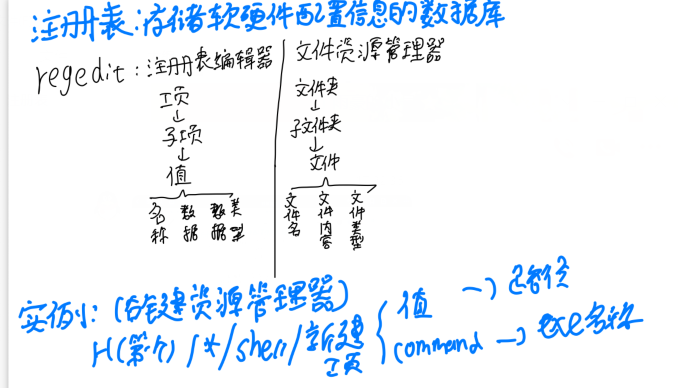 注册表:存储软硬件配置信息的数据库
regedit:注册表编辑器
项
↓
子项
↓
值
名称 数据 数据类型
文件资源管理器
文件夹
↓
子文件夹
↓
文件
文件名 文件内容 文件类型
实例:(右键资源管理器)
H(第一个)/*/shell/新建项
值 → 路径
command → exe名称